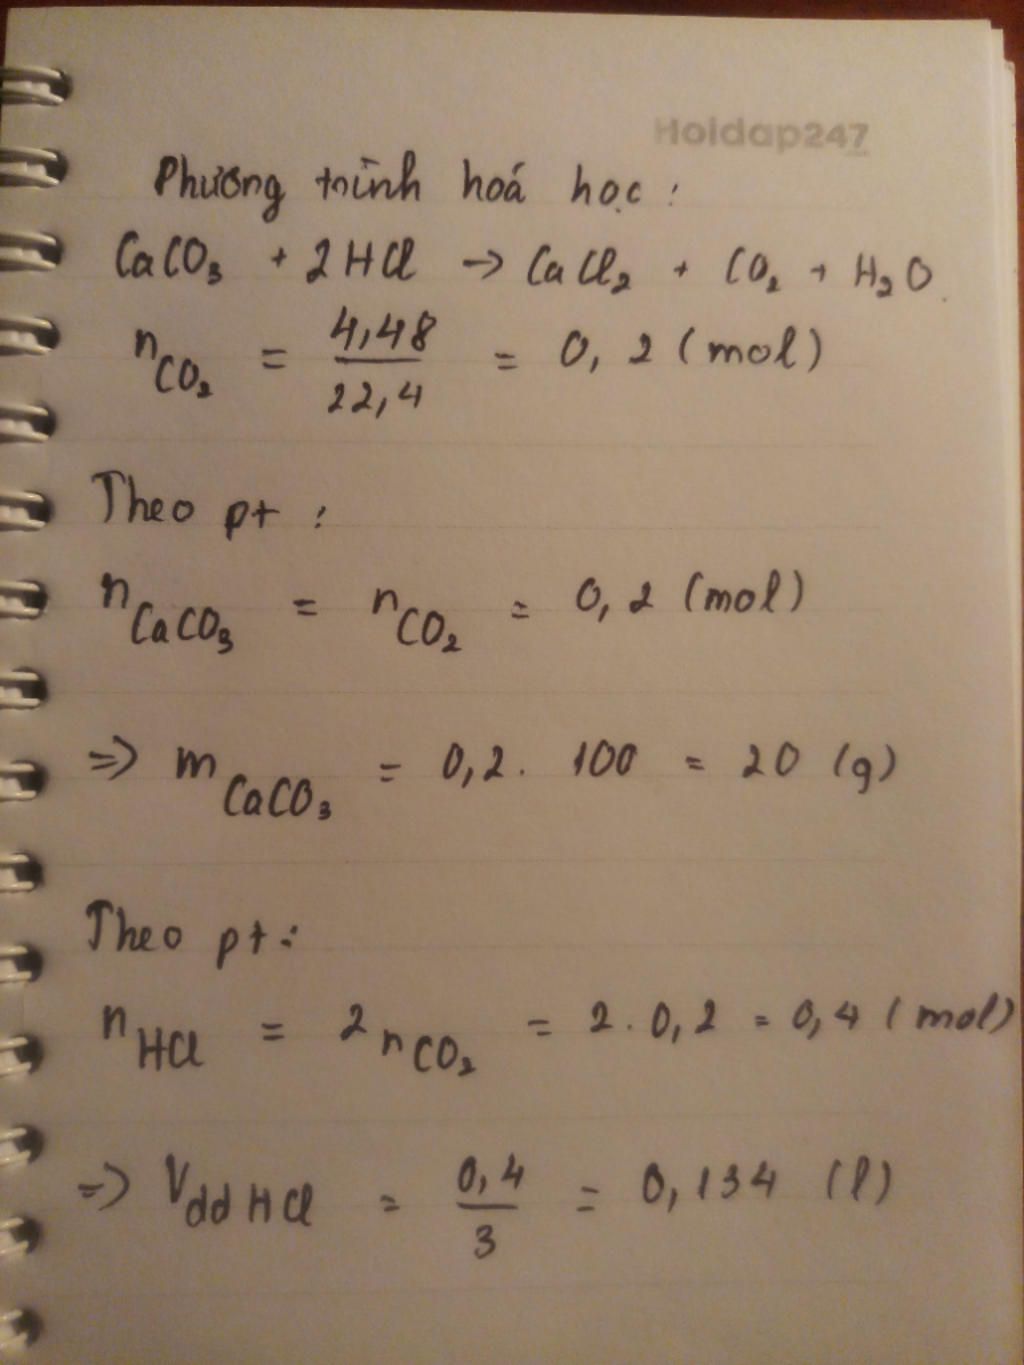 Hoidap247
Phương trình hoá học :
CaCO₃ + 2HCl → CaCl₂ + CO₂ + H₂O.
n CO₂ = 4,48 / 22,4 = 0,2 (mol)
Theo pt :
n CaCO₃ = n CO₂ = 0,2 (mol)
=> m CaCO₃ = 0,2 . 100 = 20 (g)
Theo pt :
n HCl = 2 n CO₂ = 2 . 0,2 = 0,4 (mol)
=> V dd HCl = 0,4 / 3 = 0,134 (l)